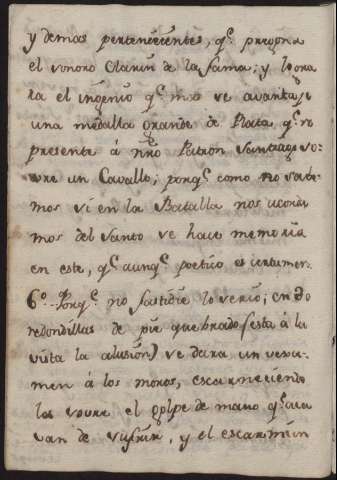 y demas pertenecientes, q.e pregona
el sonoro Clarin de la fama: y logra
ra el ingenio q.e mas se avantaje
una medalla grande de Plata q.e re
presente á nro Patron Santiago so-
vre un Cavallo; porq.e como no sabe-
mos si en la Batalla nos acorda
mos del Santo se hace memoria
en este, q.e aunq.e poetico es certamen.
6.o Porq.e no fastidie lo serio; en do
redondillas de pie quebrado (esta á la
vista la alusion) se dara un vexa-
men á los moros, escarneciendo
los sovre el golpe de mano q.e aca
van de sufrir, y el escarmin